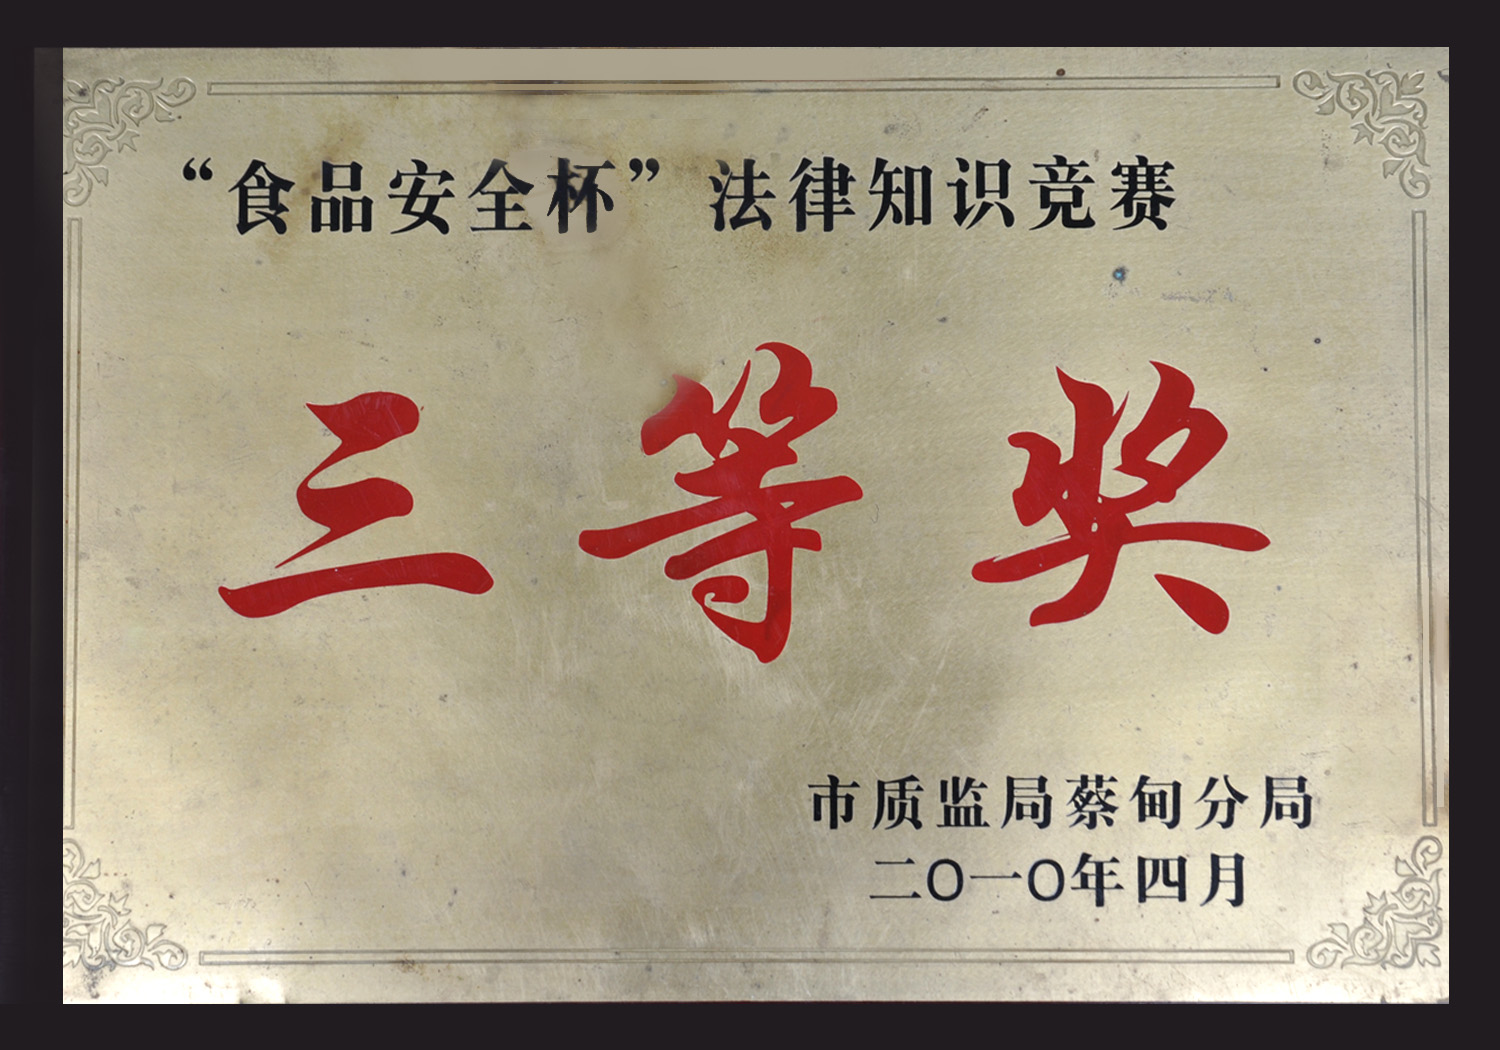 “食品安全杯”法律知识竞赛
三等奖
市质监局蔡甸分局
二〇一〇年四月